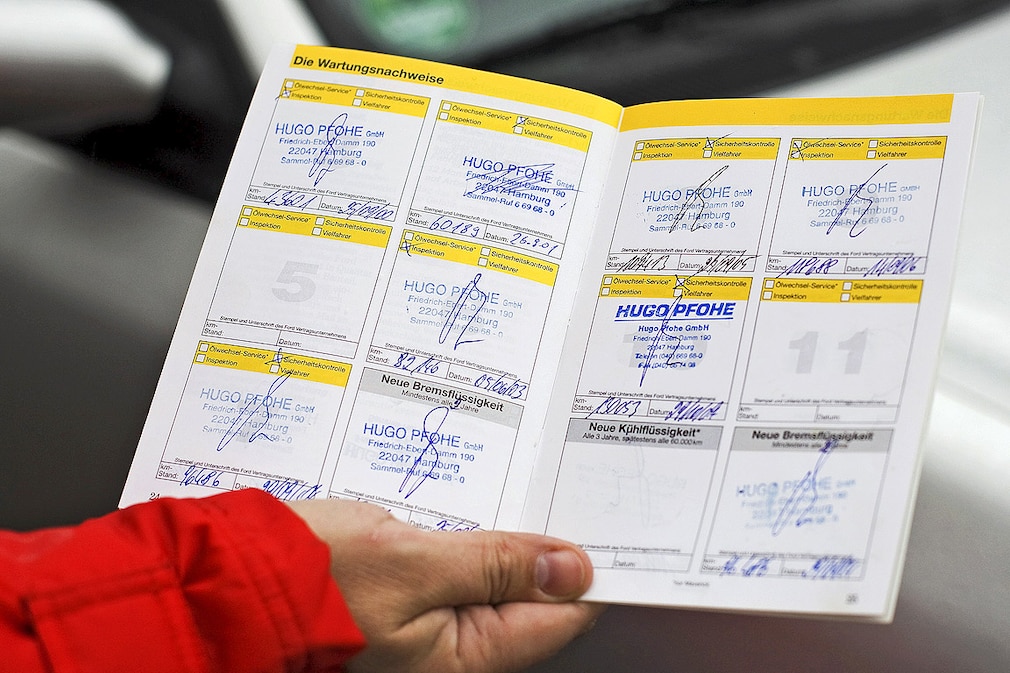 Die Wartungsnachweise
Ölwechsel-Service* Sicherheitskontrolle
Inspektion Vielfahrer
HUGO PFOHE GmbH
Friedrich-Ebert-Damm 190
22047 Hamburg
Sammel-Ruf 6 69 68 - 0
Stempel und Unterschrift des Ford Vertragsunternehmens
km-Stand: 43601 Datum:
Ölwechsel-Service* Sicherheitskontrolle
Inspektion Vielfahrer
HUGO PFOHE GmbH
Friedrich-Ebert-Damm 190
22047 Hamburg
Sammel-Ruf 6 69 68 - 0
Stempel und Unterschrift des Ford Vertragsunternehmens
km-Stand: 60189 Datum: 26.9.01
Ölwechsel-Service* Sicherheitskontrolle
Inspektion Vielfahrer
5
Stempel und Unterschrift des Ford Vertragsunternehmens
km-Stand: Datum:
Ölwechsel-Service* Sicherheitskontrolle
Inspektion Vielfahrer
HUGO PFOHE GmbH
Friedrich-Ebert-Damm 190
22047 Hamburg
Sammel-Ruf 6 69 68 - 0
Stempel und Unterschrift des Ford Vertragsunternehmens
km-Stand: 82,146 Datum: 05/06/03
Ölwechsel-Service* Sicherheitskontrolle
Inspektion Vielfahrer
HUGO PFOHE GmbH
Friedrich-Ebert-Damm 190
22047 Hamburg
Sammel-Ruf 6 69 68 - 0
Stempel und Unterschrift des Ford Vertragsunternehmens
km-Stand: 96486 Datum:
24
Neue Bremsflüssigkeit
Mindestens alle 2 Jahre
HUGO PFOHE GmbH
Friedrich-Ebert-Damm 190
22047 Hamburg
Sammel-Ruf 6 69 68 - 0
Stempel und Unterschrift des Ford Vertragsunternehmens
Datum:
Ölwechsel-Service* Sicherheitskontrolle
Inspektion Vielfahrer
HUGO PFOHE GmbH
Friedrich-Ebert-Damm 190
22047 Hamburg
Sammel-Ruf 6 69 68 - 0
Stempel und Unterschrift des Ford Vertragsunternehmens
km-Stand: Datum:
Ölwechsel-Service* Sicherheitskontrolle
Inspektion Vielfahrer
HUGO PFOHE GMBH
Friedrich-Ebert-Damm 190
22047 Hamburg
Sammel-Ruf 6 69 68 - 0
Stempel und Unterschrift des Ford Vertragsunternehmens
km-Stand: 118688 Datum:
Ölwechsel-Service* Sicherheitskontrolle
Inspektion Vielfahrer
HUGO PFOHE
Hugo Pfohe GmbH
Friedrich-Ebert-Damm 190
22047 Hamburg
Telefon (040) 669 68-0
Stempel und Unterschrift des Ford Vertragsunternehmens
km-Stand: 130053 Datum:
Ölwechsel-Service* Sicherheitskontrolle
Inspektion Vielfahrer
11
Stempel und Unterschrift des Ford Vertragsunternehmens
km-Stand: Datum:
Neue Kühlflüssigkeit*
Alle 3 Jahre, spätestens alle 60.000 km
Stempel und Unterschrift des Ford Vertragsunternehmens
Datum:
Neue Bremsflüssigkeit
Mindestens alle 2 Jahre
HUGO PFOHE GmbH
Friedrich-Ebert-Damm 190
22047 Hamburg
Sammel-Ruf 6 69 68 - 0
Stempel und Unterschrift des Ford Vertragsunternehmens